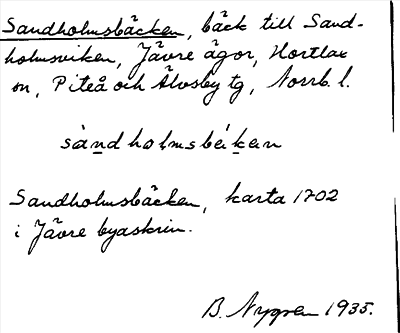 Sandholmsbäcken, bäck till Sand-
holmsviken, Jävre ägor, Hortlax
sn, Piteå och Älvsby tg, Norrb. l.
sàndholmsbékan
Sandholmsbäcken, karta 1702
i Jävre byaskrin.
B. Nygren 1935.